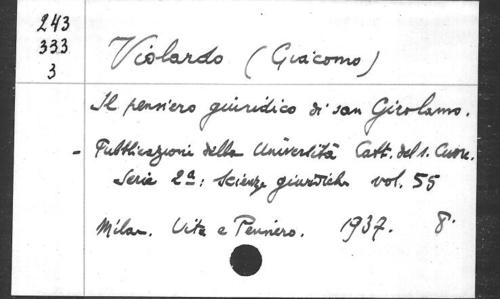 243
333
3
Violardo (Giacomo)
Il pensiero giuridico di san Girolamo.
- Pubblicazioni della Università Catt. del s. Cuore.
Serie 2ª: Scienze giuridiche vol. 55
Milan. Vita e Pensiero. 1937. 8º